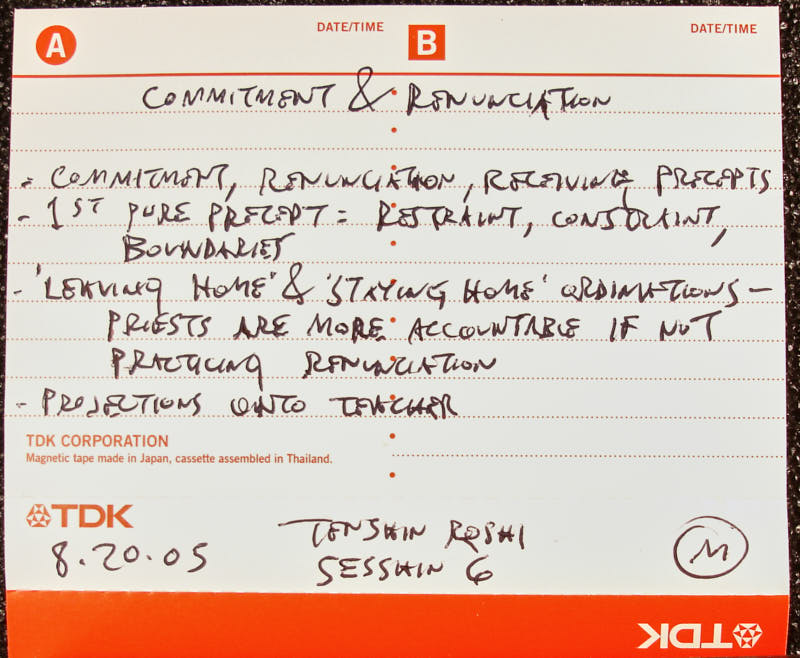 A DATE/TIME B DATE/TIME
COMMITMENT & RENUNCIATION
- COMMITMENT, RENUNCIATION, RECEIVING PRECEPTS
- 1ST PURE PRECEPT = RESTRAINT, CONSTRAINT,
BOUNDARIES
- 'LEAVING HOME' & 'STAYING HOME' ORDINATIONS —
PRIESTS ARE MORE ACCOUNTABLE IF NOT
PRACTICING RENUNCIATION
- PROJECTIONS ONTO TEACHER
TDK CORPORATION
Magnetic tape made in Japan, cassette assembled in Thailand.
TDK
TENSHIN ROSHI
8.20.05
SESSHIN 6
M
TDK